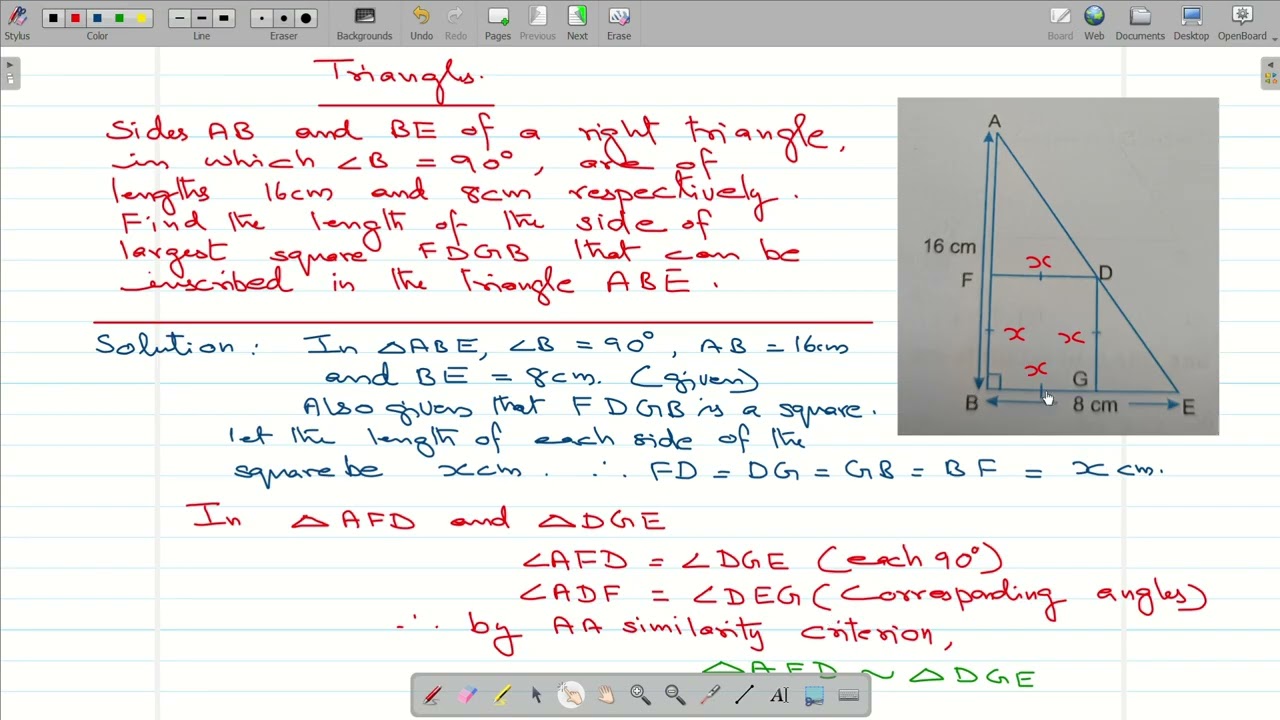 Stylus
Color
Line
Eraser
Backgrounds
Undo
Redo
Pages
Previous
Next
Erase
Board
Web
Documents
Desktop
OpenBoard
Triangles.
Sides AB and BE of a right triangle,
in which ∠B = 90°, are of
lengths 16cm and 8cm respectively.
Find the length of the side of
largest square FDGB that can be
inscribed in the triangle ABE.
A
16 cm
x
F
D
x
x
x
G
B
8 cm
E
Solution: In △ABE, ∠B = 90°, AB = 16cm
and BE = 8cm. (given)
Also given that FDGB is a square.
let the length of each side of the
square be x cm. ∴ FD = DG = GB = BF = x cm.
In △AFD and △DGE
∠AFD = ∠DGE (each 90°)
∠ADF = ∠DEG (Corresponding angles)
∴ by AA similarity criterion,
△AFD ~ △DGE
AI